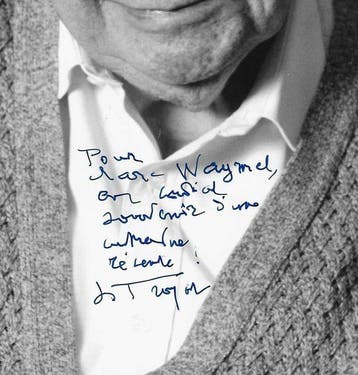 Pour
Marc Waymel,
en cordial
souvenir d'une
entrevue
récente !
H Troyat